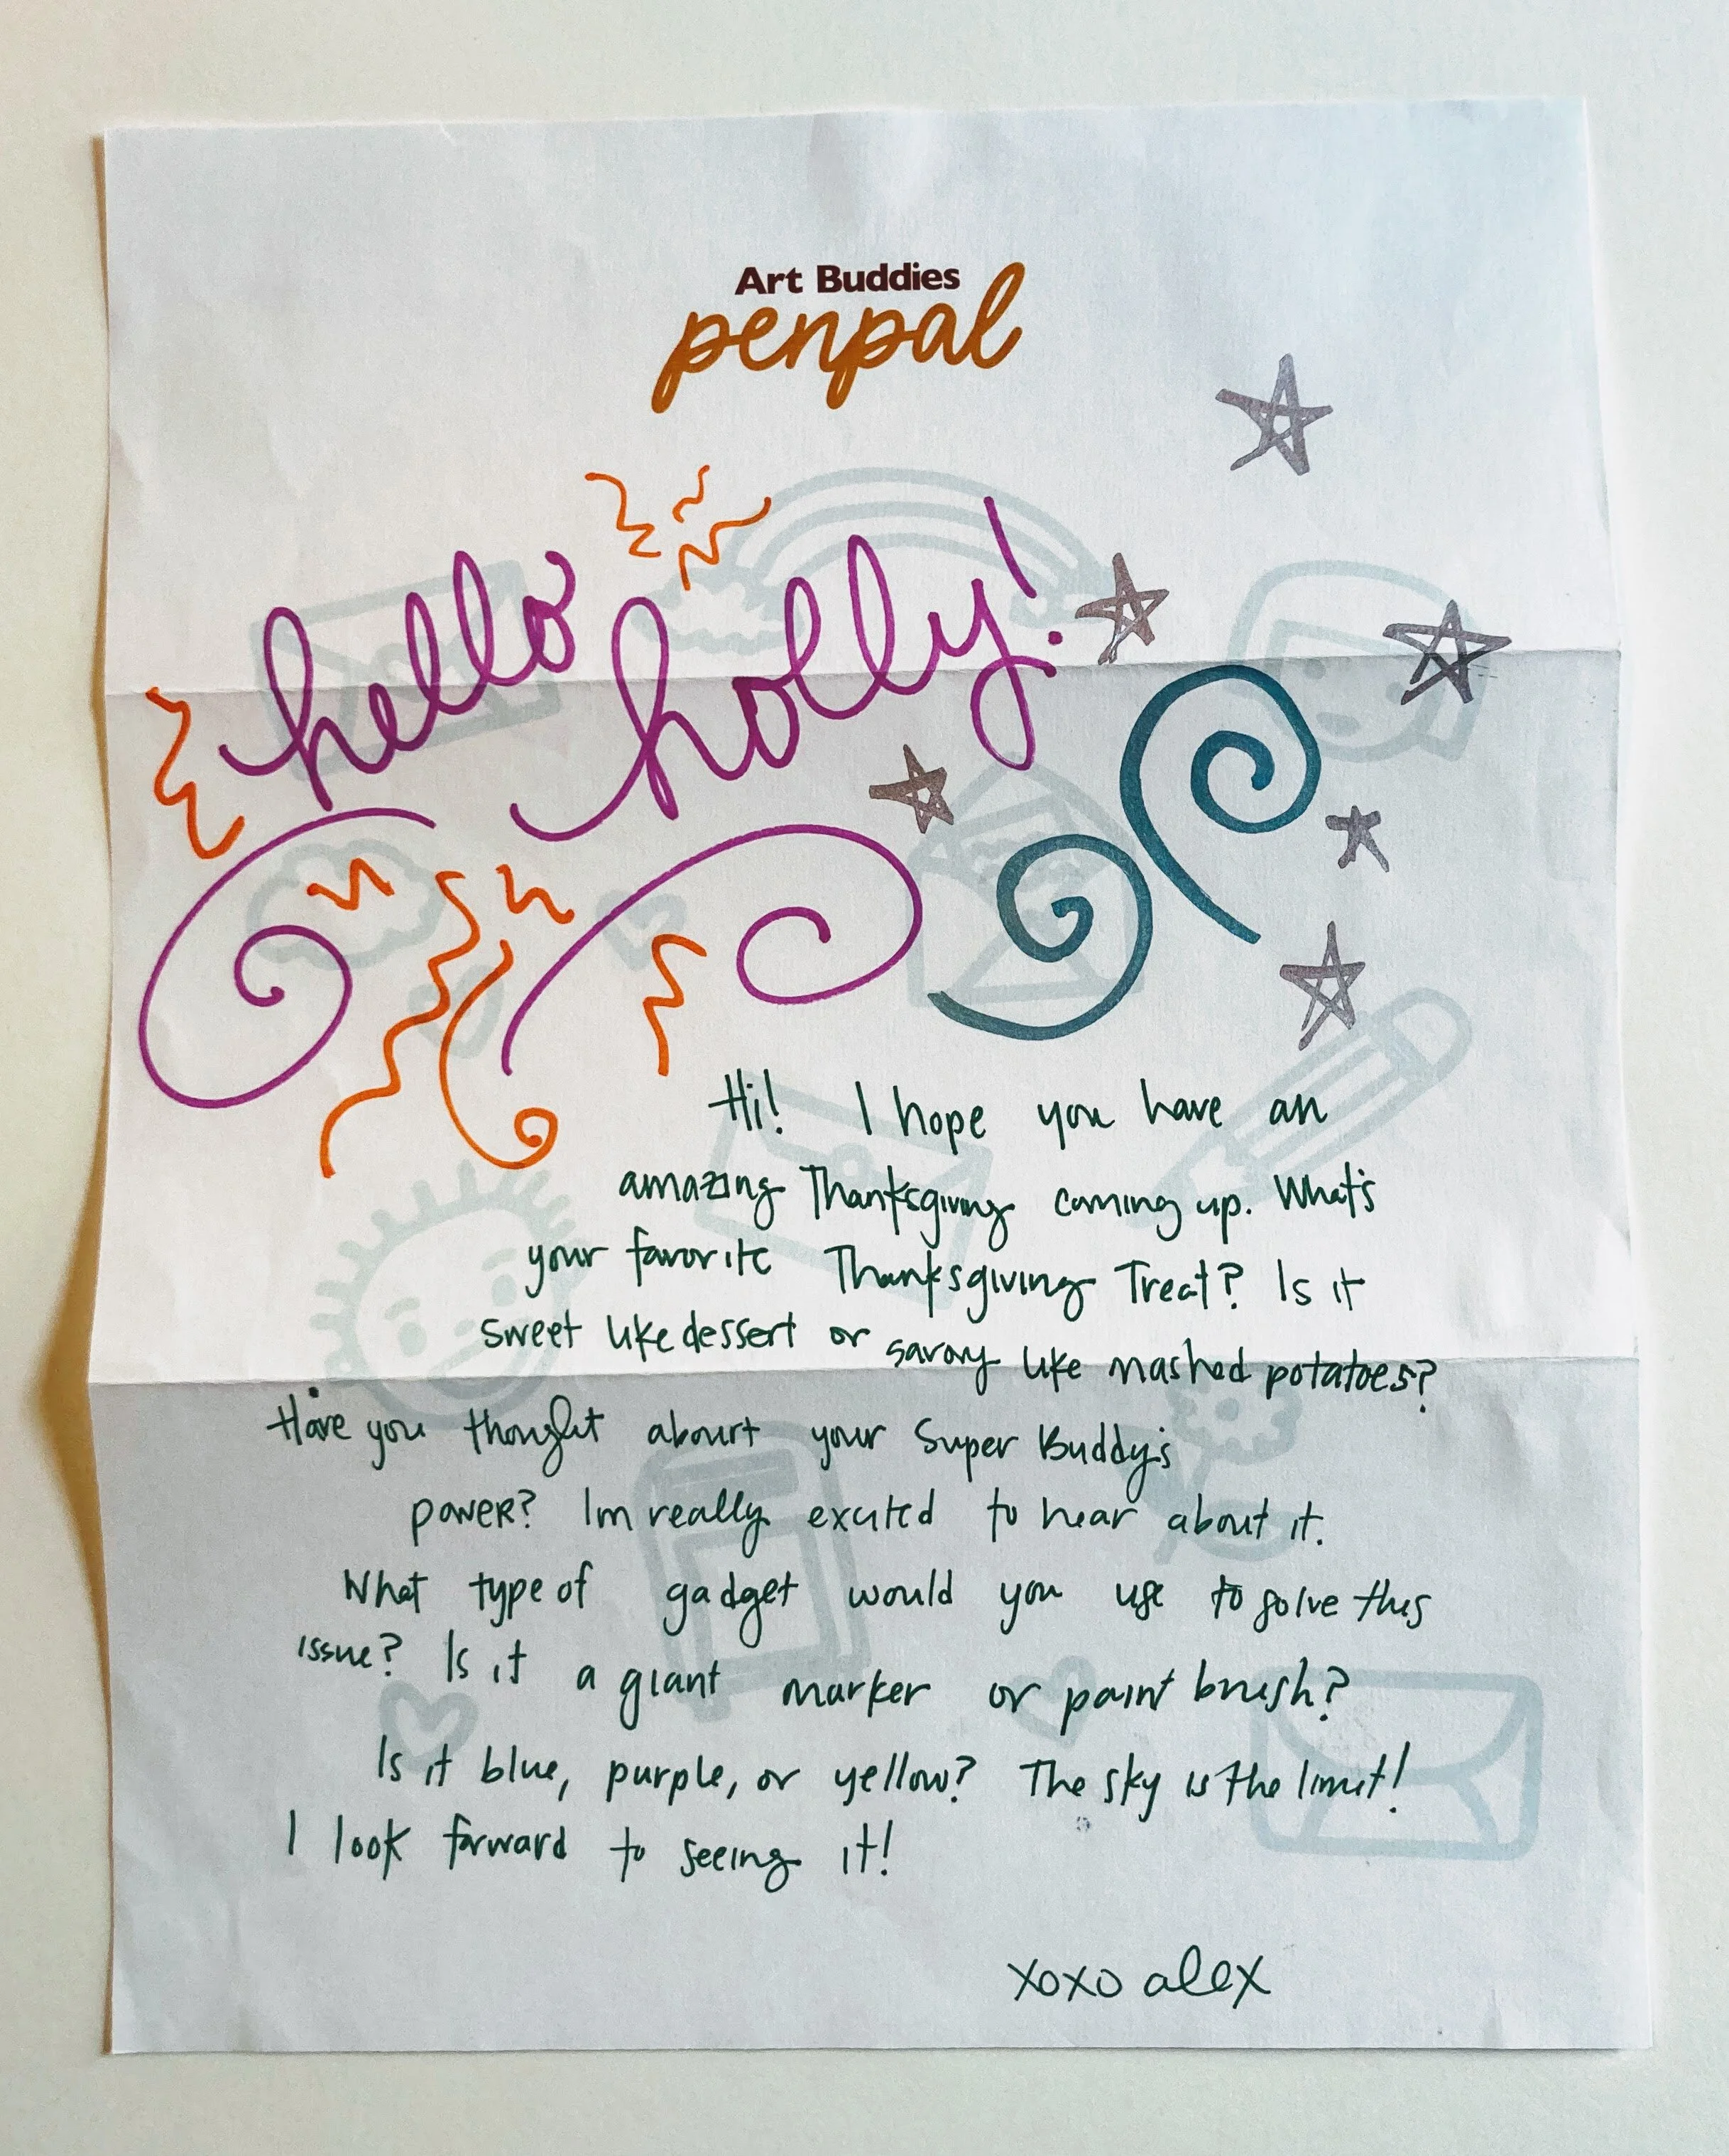 Art Buddies
penpal
hello holly!
Hi! I hope you have an
amazing Thanksgiving coming up. What's
your favorite Thanksgiving Treat? Is it
sweet like dessert or savory like mashed potatoes?
Have you thought about your Super Buddy's
power? Im really excited to hear about it.
What type of gadget would you use to solve this
issue? Is it a giant marker or paint brush?
Is it blue, purple, or yellow? The sky is the limit!
I look forward to seeing it!
xoxo alex